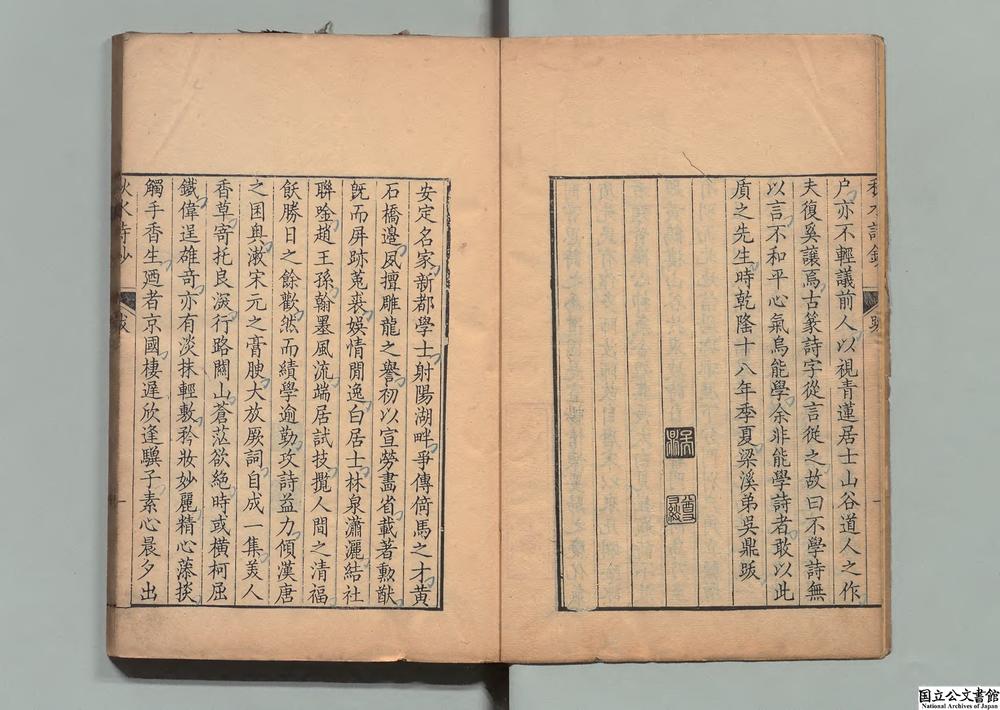 戶亦不輕議前人以視青蓮居士山谷道人之作
夫復奚讓焉古篆詩字從言從之故曰不學詩無
以言不和平心氣烏能學余非能學詩者敢以此
質之先生時乾隆十八年季夏梁溪弟吳鼎跋
跋
安定名家新都學士射陽湖畔爭傳倚馬之才黃
石橋邊夙擅雕龍之譽初以宣勞畫省載著勳猷
旣而屏跡菟裘娛情閒逸白居士林泉瀟灑結社
聯唫趙王孫翰墨風流端居試技攬人間之清福
飫勝日之餘歡然而績學逾勤攻詩益力傾漢唐
之囷奧潄宋元之膏腴大放厥詞自成一集美人
香草寄托良深行路關山蒼茫欲絶時或橫柯屈
鐵偉逞雄奇亦有淡抹輕敷矜妝妙麗精心藻掞
觸手香生廼者京國棲遲欣逢驥子素心晨夕出
跋
国立公文書館
National Archives of Japan